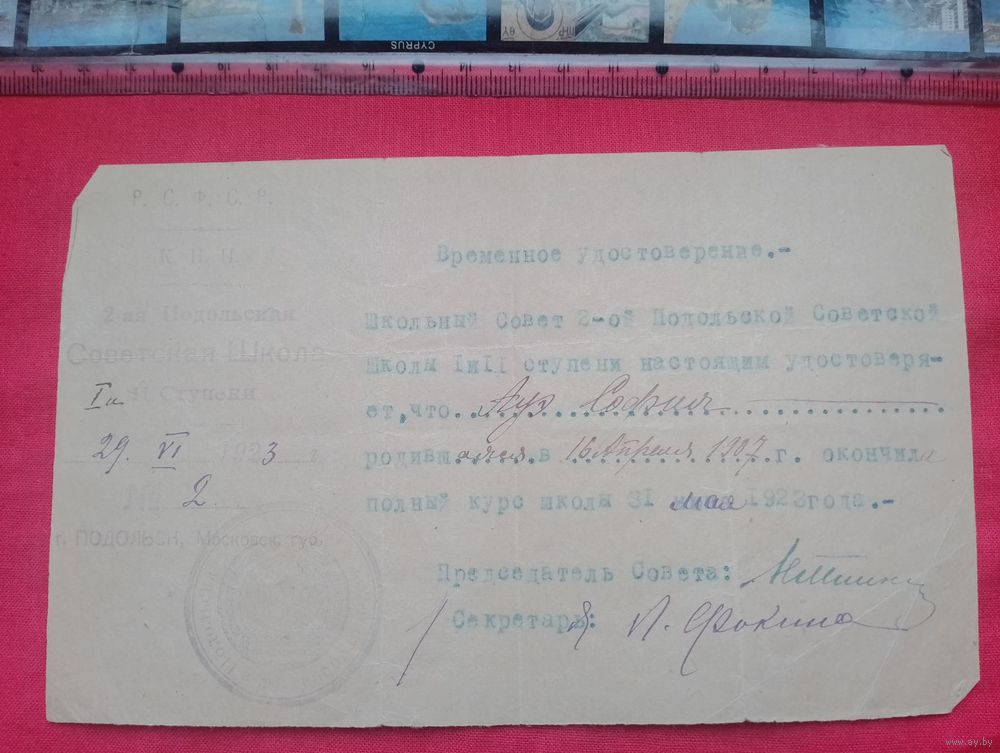 CYPRUS
Р. С. Ф. С. Р.
К. Н. П.
2-ая Подольская
Советская Школа
I и II Ступени
29. VI 1923 г.
№ 2.
г. ПОДОЛЬСК, Московск. губ.
Временное удостоверение.-
Школьный Совет 2-ой Подольской Советской
Школы I и II ступени настоящим удостоверя-
ет, что Ауэ София
родившаяся в 16 Апреля 1907 г. окончила
полный курс школы 31 мая 1923 года.-
Председатель Совета:
Секретарь: Л. Фокина
www.ay.by